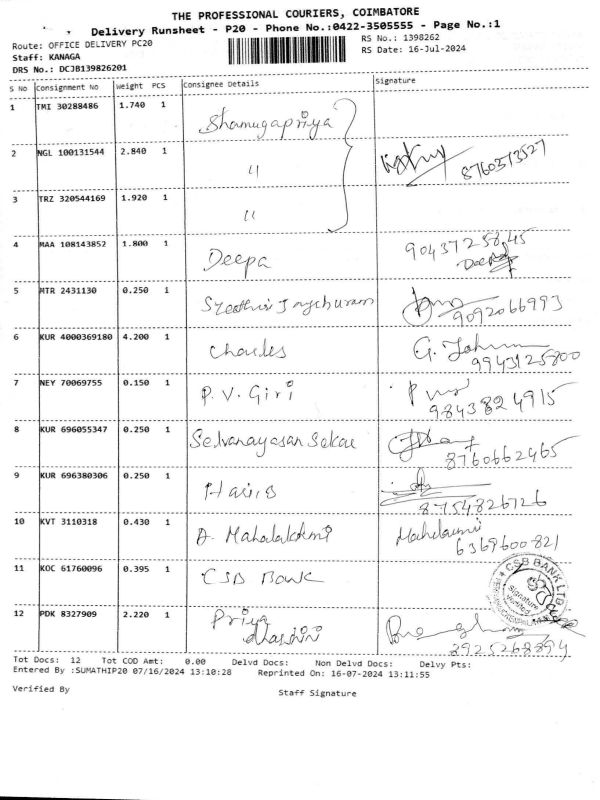 THE PROFESSIONAL COURIERS, COIMBATORE
Delivery Runsheet - P20 - Phone No.:0422-3505555 - Page No.:1
Route: OFFICE DELIVERY PC20 RS No.: 1398262
Staff: KANAGA RS Date: 16-Jul-2024
DRS No.: DCJB139826201
S No Consignment No Weight PCS Consignee Details Signature
1 TMI 30288486 1.740 1 Shamugapriya
2 NGL 100131544 2.840 1 " 8760373527
3 TRZ 320544169 1.920 1 "
4 MAA 108143852 1.800 1 Deepa 9043725845
Deepa
5 MTR 2431130 0.250 1
9092066993
6 KUR 4000369180 4.200 1 Charles G.
9943125800
7 NEY 70069755 0.150 1 P.V. Giri
9843824915
8 KUR 696055347 0.250 1 Selvanayagan Sekar
8760662465
9 KUR 696380306 0.250 1 Haris
8754826726
10 KVT 3110318 0.430 1 A. Mahalakshmi
6369600821
11 KOC 61760096 0.395 1 CSB Bank CSB BANK LTD
Signature
Verified
12 PDK 8327909 2.220 1 Priya
Dharshini
8925268894
Tot Docs: 12 Tot COD Amt: 0.00 Delvd Docs: Non Delvd Docs: Delvy Pts:
Entered By :SUMATHIP20 07/16/2024 13:10:28 Reprinted On: 16-07-2024 13:11:55
Verified By Staff Signature